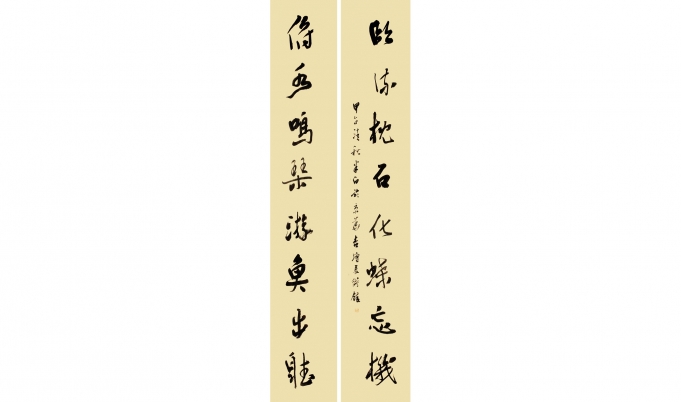 臨流枕石化蝶忘機
甲午清秋
俯水鳴琴游魚出聽